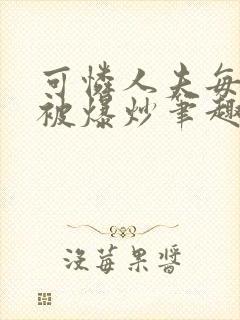 可憐人夫每
被爆炒筆趣
沒莓果醬